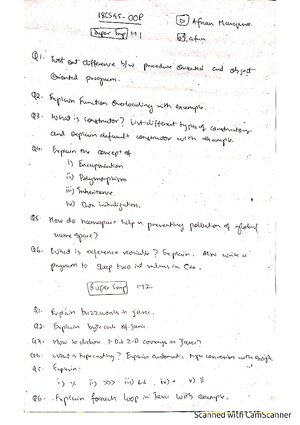 18CS45-OOP
Afnan Marquee
Super Imp M1
afnn
Q1. List out difference b/w procedure oriented and object
oriented program.
Q2. Explain Function Overloading with example.
Q3. What is constructor? List different types of constructor
and explain default constructor with example.
Q4. Explain the concept of
i) Encapsulation
ii) Polymorphism
iii) Inheritance.
iv) Data initialization.
Q5. How do namespace help in preventing pollution of global
name space?
Q6. What is reference variable? Explain. Also write a
program to swap two values in C++.
Super Imp M2
Q1. Explain buzzwords in java.
Q2. Explain byte code of java.
Q3. How to declare 1-D & 2-D arrays in Java?
Q4. What is typecasting? Explain automatic type conversion with
Q5. Explain:
i) % ii) >>> iii) && iv) v) ||
Q6. Explain foreach loop in Java with example.
Scanned with CamScanner